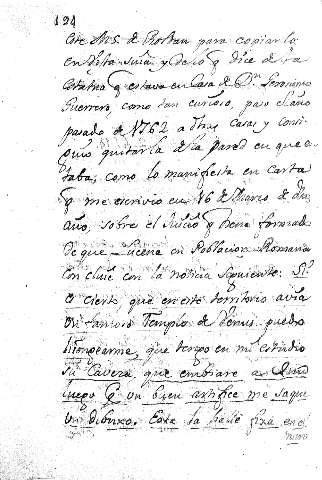 124
este Ms. de Roldan para copiarlo
en dicha y dexo q dice de la
estatua q estava en Casa de Dn Geronimo
Guerrero, como tan curioso, paso el año
pasado de 1762 a otras Casas y consi-
guió quitarla de la pared en que es
taba, como lo manifiesta en carta
q me escrivio en 16 de Marzo de dho
año, sobre el Juicio q tiene formado
de que Lucena en Poblacion Romana
Concluie con la noticia siguiente: Si
es cierto, que en este territorio avia
un famoso Templo de Venus puedo
lisongearme, que tengo en mi estudio
su Cavera que embiare a
luego q un buen artifice me saque
un dibuxo. Esta la halle fixa en el
muro